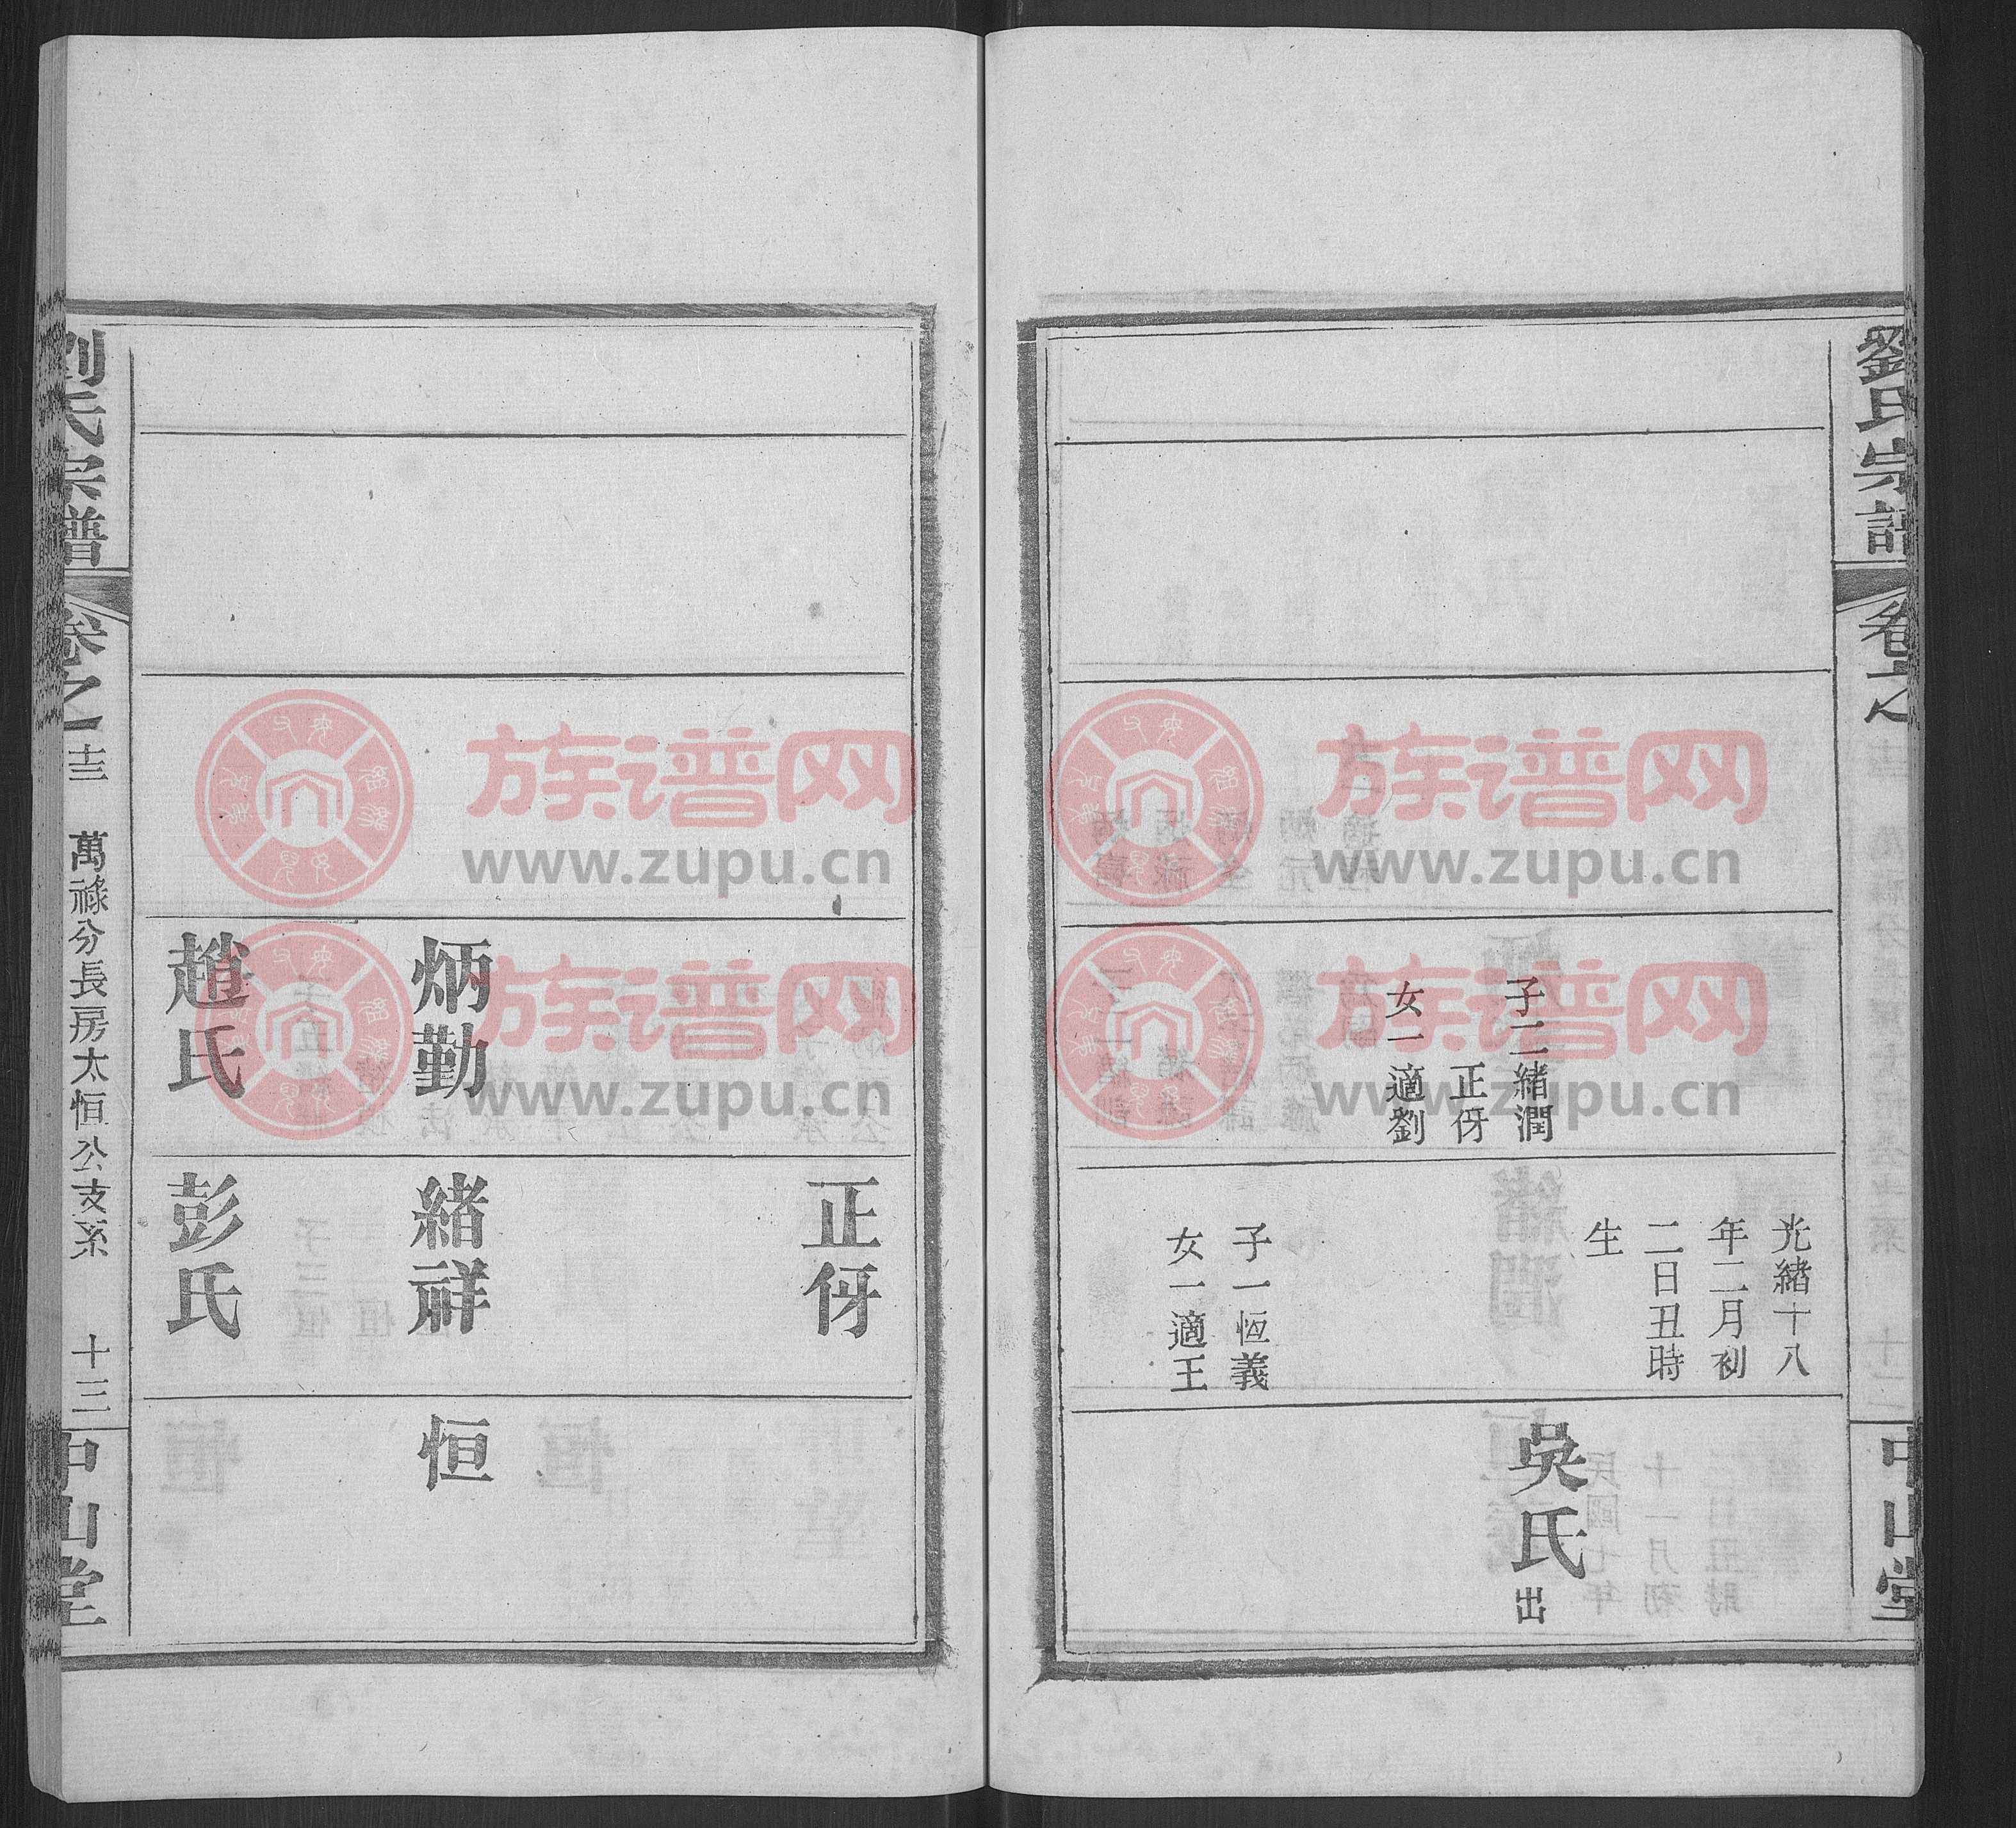 劉氏宗譜
卷之
中山堂
子二緒潤
正伢
女一適劉
光緒十八
年二月初
二日丑時
生
子一恒義
女一適王
吳氏出
正伢
炳勤
緒祥
恒
趙氏
彭氏
劉氏宗譜
卷之一
十三
萬祿分長房太恒公支系
十三
中山堂
族谱网
www.zupu.cn
族谱网
www.zupu.cn
族谱网
www.zupu.cn
族谱网
www.zupu.cn